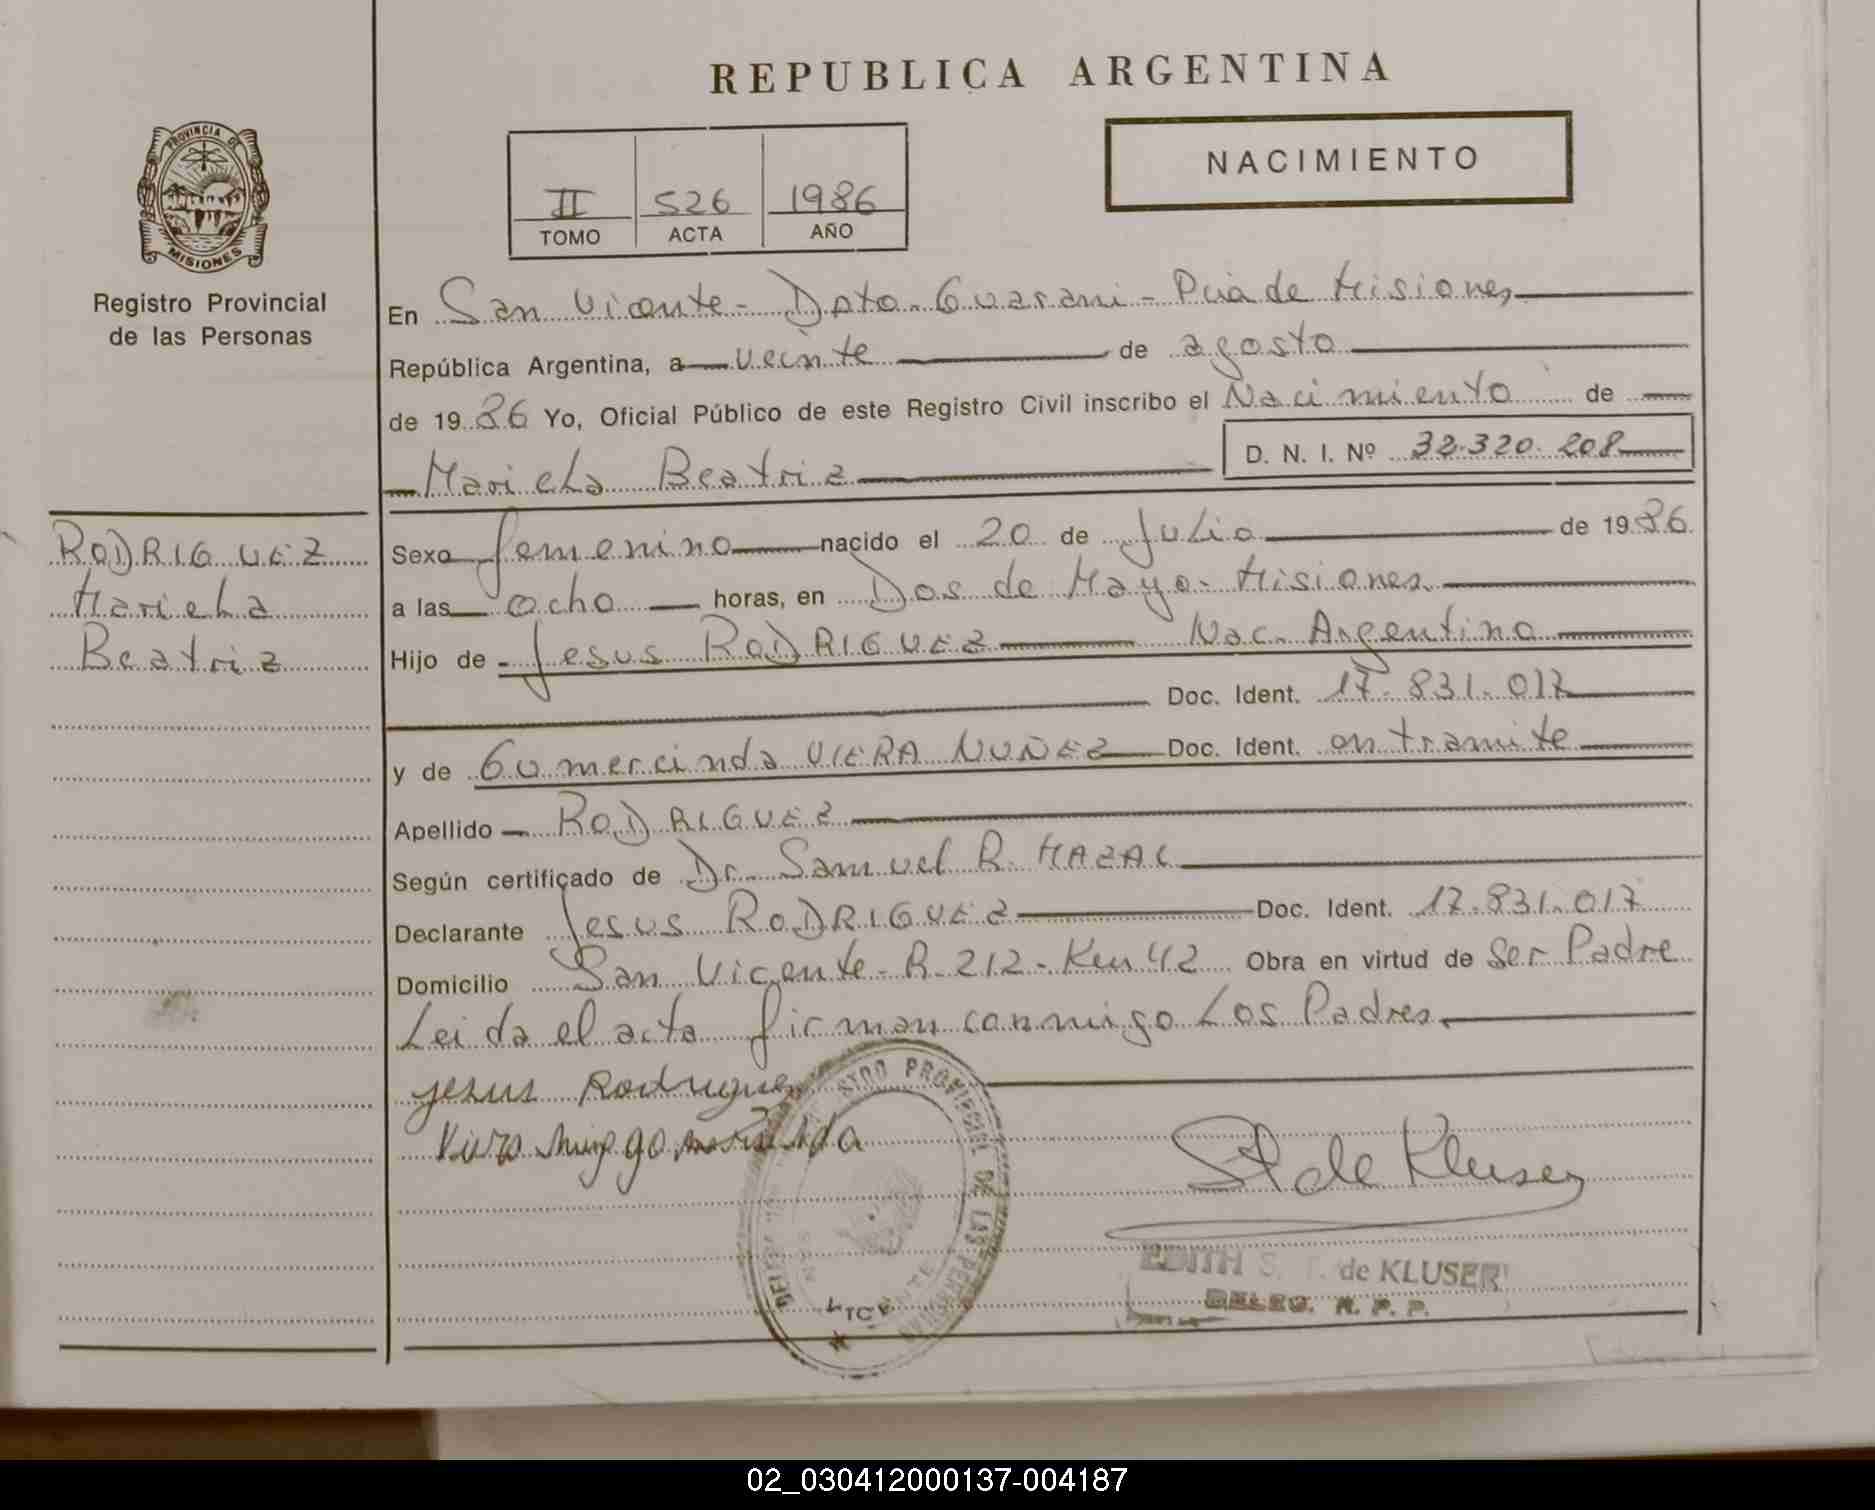 REPUBLICA ARGENTINA
PROVINCIA DE
MISIONES
Registro Provincial
de las Personas
II 526 1986
TOMO ACTA AÑO
NACIMIENTO
En San Vicente - Dpto - Guarani - Pcia de Misiones
República Argentina, a veinte de agosto
de 19 86 Yo, Oficial Público de este Registro Civil inscribo el Nacimiento de
D. N. I. Nº 32.320.208
Mariela Beatriz
RODRIGUEZ
Mariela
Beatriz
Sexo femenino nacido el 20 de Julio de 19 86
a las ocho horas, en Dos de Mayo - Misiones
Hijo de Jesus RODRIGUEZ Nac. Argentino
Doc. Ident. 17.831.017
y de Gumercinda VIERA NUÑEZ Doc. Ident. en tramite
Apellido RODRIGUEZ
Según certificado de Dr. Samuel R. MAZAL
Declarante Jesus RODRIGUEZ Doc. Ident. 17.831.017
Domicilio San Vicente - R. 212 - Km 42 Obra en virtud de Ser Padre
Leida el acta firman conmigo Los Padres
Jesus Rodriguez
STRO PROVINCIAL DE LAS PER
VICENTE
St de Kluser
EDITH S. T. de KLUSER
DELEG. R. P. P.
02_030412000137-004187